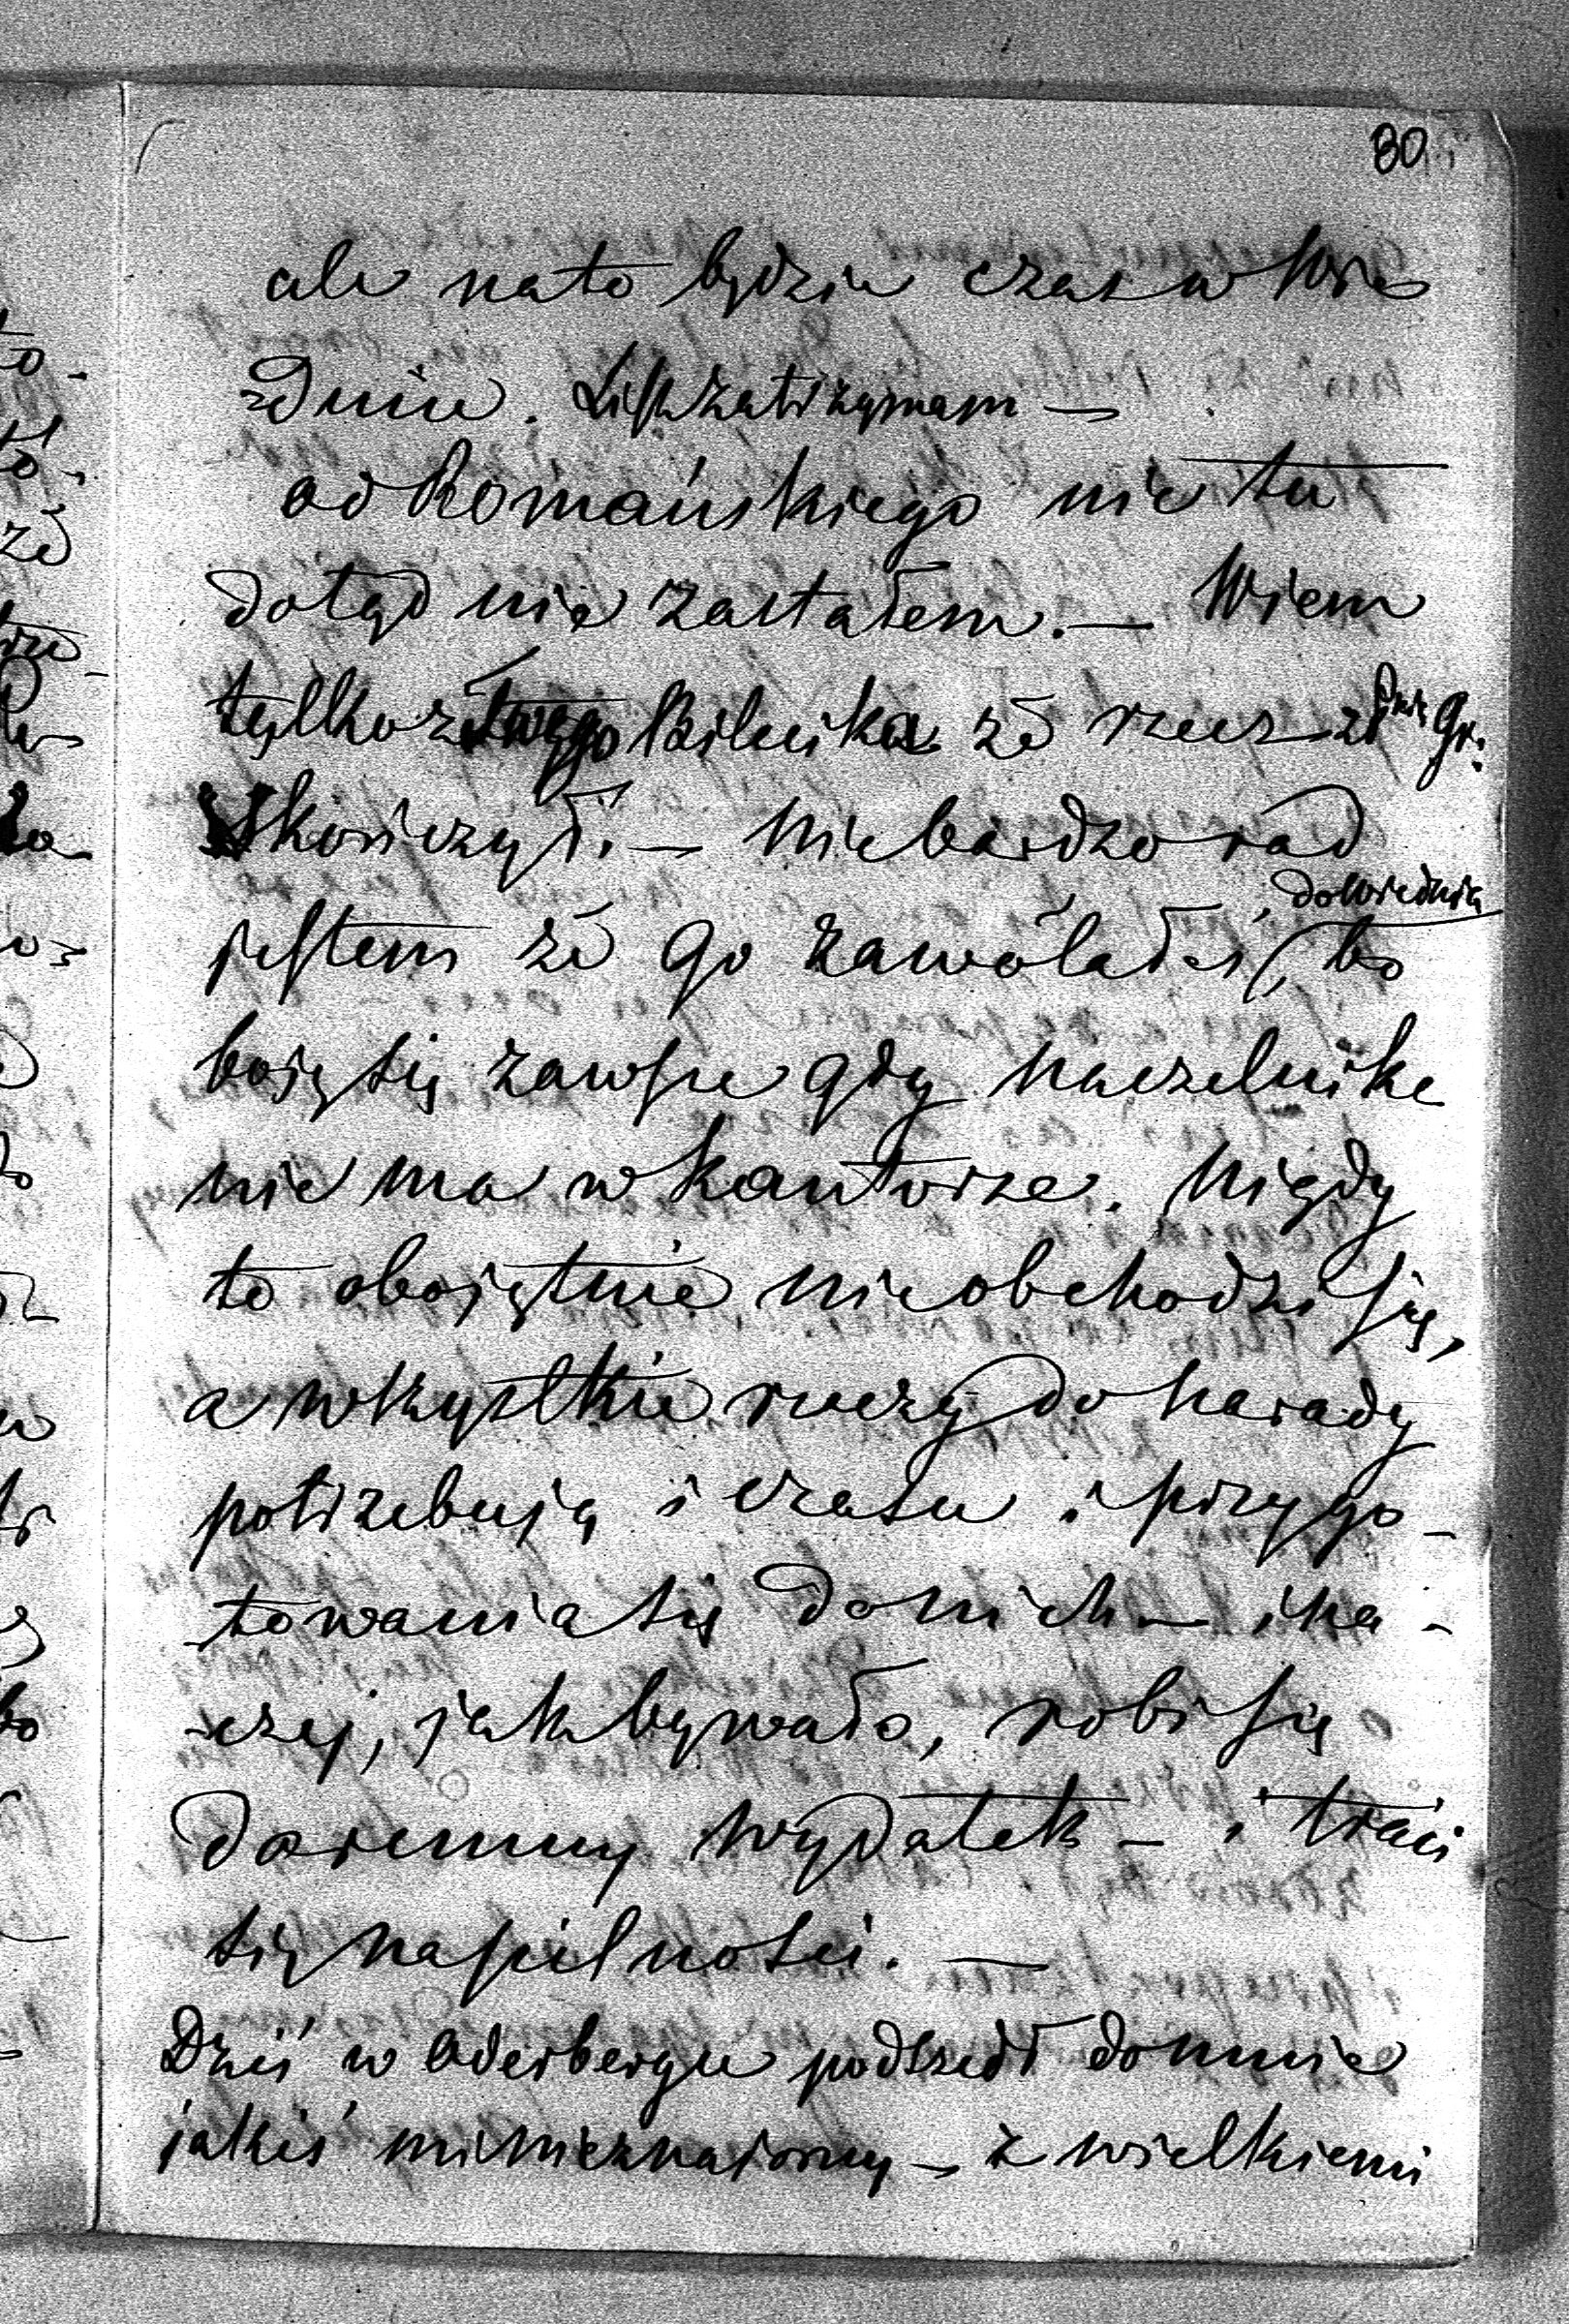 80
ale nato będzie czas w Wie
=dniu. List zatrzymam —
od Romańskiego nic tu
dotąd nie zastałem. — Wiem
tylko z Twego Bilecika że rzecz z Gr.
skończył. — Nie bardzo rad
jestem że go zawołałeś, do Wiednia, bo
boję się zawsze gdy naczelnika
nie ma w kantorze. Nigdy
to obojętnie nie obchodzi się,
a wszystkie rzeczy do narady
potrzebują i czasu i przygo-
towania się do nich — ina-
-czej, jak bywało, robi się
daremny wydatek — i traci
się na pilności. —
Dziś w Oderbergu podszedł do mnie
jakiś mi nieznajomy — z wielkiemi